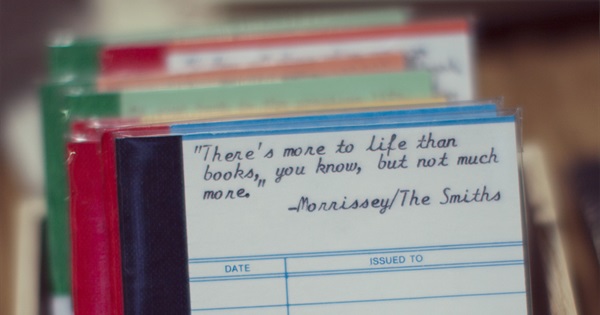 "There's more to life than
books,„ you know, but not much
more.„
-Morrissey/The Smiths
DATE
ISSUED TO